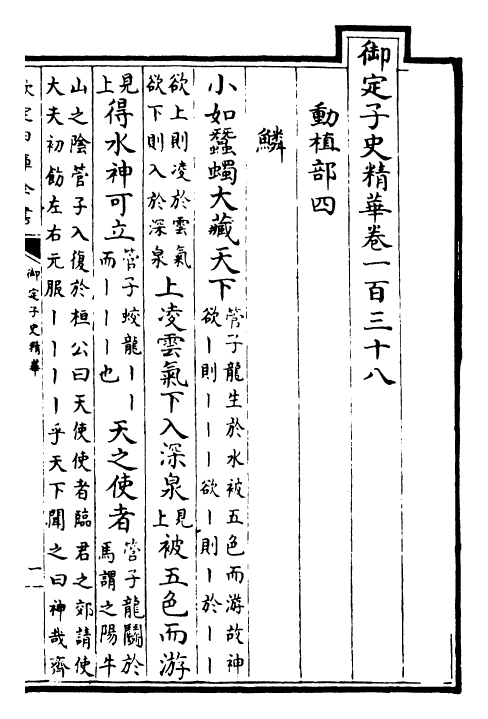 御定子史精華卷一百三十八
動植部四
鱗
小如蠶蠋大藏天下 管子龍生於水被五色而游故神
欲丨則丨丨丨欲丨則丨於丨丨
欲上則凌於雲氣
欲下則入於深泉 上凌雲氣下入深泉 見
上 被五色而游
見
上 得水神可立 管子蛟龍丨丨
而丨丨丨也 天之使者 管子龍鬭於
馬謂之陽牛
山之陰管子入復於桓公曰天使使者臨君之郊請使
大夫初飭左右元服丨丨丨丨乎天下聞之曰神哉齊
御定子史精華
一